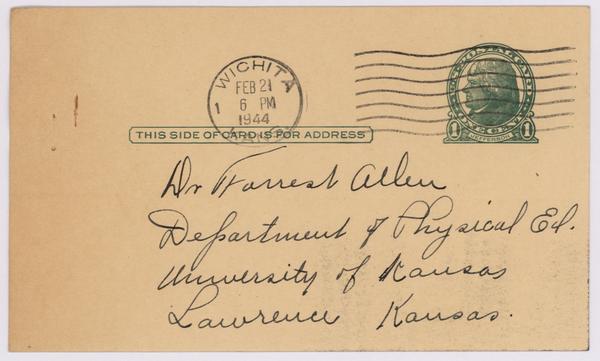 WICHITA
FEB 21
1 6 PM
1944
KANS.
U.S. POSTAL CARD
1 ONE CENT 1
JEFFERSON
THIS SIDE OF CARD IS FOR ADDRESS
Dr Forrest Allen
Department of Physical Ed.
University of Kansas
Lawrence Kansas.